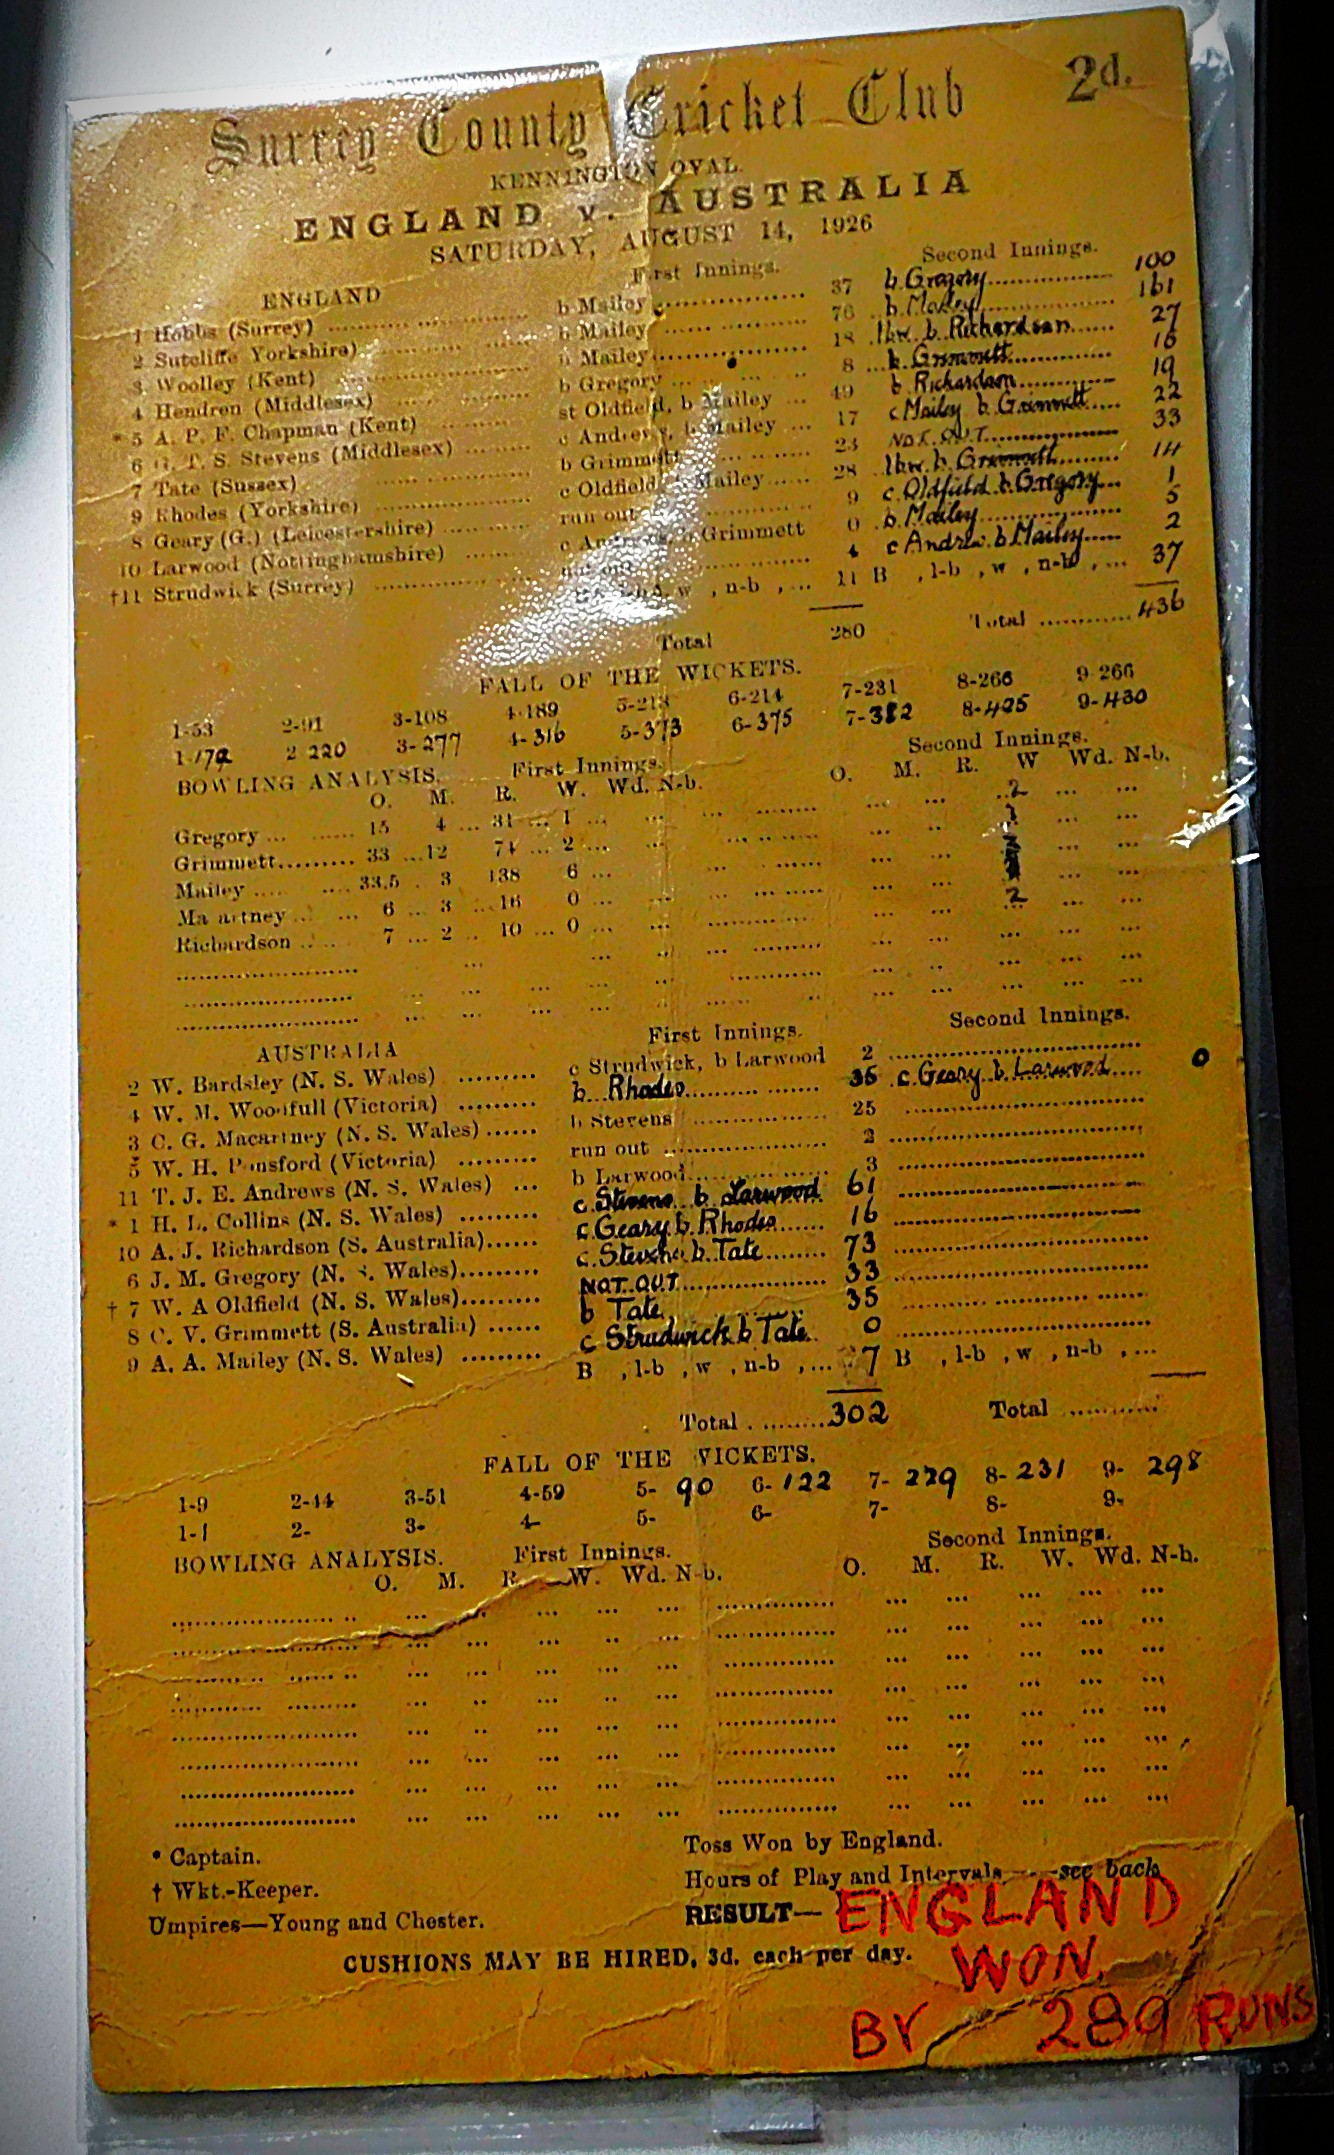 Surrey County Cricket Club 2d.
KENNINGTON OVAL.
ENGLAND v. AUSTRALIA
SATURDAY, AUGUST 14, 1926
ENGLAND First Innings. Second Innings.
1 Hobbs (Surrey) b Mailey 37 b. Gregory 100
2 Sutcliffe Yorkshire) b Mailey 76 b. Mailey 161
3 Woolley (Kent) b Mailey 18 lbw. b. Richardson 27
4 Hendren (Middlesex) b Gregory 8 b. Grimmett 16
* 5 A. P. F. Chapman (Kent) st Oldfield, b Mailey 49 b. Richardson 19
6 G. T. S. Stevens (Middlesex) c Andrews, b Mailey 17 c Mailey b. Grimmett 22
7 Tate (Sussex) b Grimmett 23 NOT OUT 33
9 Rhodes (Yorkshire) c Oldfield, b Mailey 28 lbw. b. Grimmett 14
8 Geary (G.) (Leicestershire) run out 9 c. Oldfield b Gregory 1
10 Larwood (Nottinghamshire) c Andrews, b Grimmett 0 b. Mailey 5
†11 Strudwick (Surrey) not out 4 c Andrew b Mailey 2
w , n-b , ... 11 B , l-b , w , n-b , ... 37
Total 280 Total 436
FALL OF THE WICKETS.
1-53 2-91 3-108 4-189 5-213 6-214 7-231 8-266 9-266
1-172 2 220 3-277 4-316 5-373 6-375 7-382 8-425 9-430
BOWLING ANALYSIS. First Innings. Second Innings.
O. M. R. W. Wd. N-b. O. M. R. W Wd. N-b.
Gregory 15 4 31 1 2
Grimmett 33 12 74 2 1
Mailey 33.5 3 138 6
Ma artney 6 3 16 0 2
Richardson 7 2 10 0
AUSTRALIA First Innings. Second Innings.
2 W. Bardsley (N. S. Wales) c Strudwick, b Larwood 2
4 W. M. Woodfull (Victoria) b. Rhodes 35 c. Geary b Larwood 0
3 C. G. Macartney (N. S. Wales) b Stevens 25
5 W. H. Ponsford (Victoria) run out 2
11 T. J. E. Andrews (N. S. Wales) b Larwood 3
* 1 H. L. Collins (N. S. Wales) c. Stevens b Larwood 61
10 A. J. Richardson (S. Australia) c. Geary b. Rhodes 16
6 J. M. Gregory (N. S. Wales) c. Stevens b. Tate 73
† 7 W. A Oldfield (N. S. Wales) NOT OUT 33
8 C. V. Grimmett (S. Australia) b Tate 35
9 A. A. Mailey (N. S. Wales) c Strudwick b Tate 0
B , l-b , w , n-b , ... 7 B , l-b , w , n-b , ...
Total 302 Total
FALL OF THE WICKETS.
1-9 2-44 3-51 4-59 5- 90 6- 122 7- 229 8- 231 9- 298
1-1 2- 3- 4- 5- 6- 7- 8- 9-
BOWLING ANALYSIS. First Innings. Second Innings.
O. M. R. W. Wd. N-b. O. M. R. W. Wd. N-b.
* Captain. Toss Won by England.
† Wkt.-Keeper. Hours of Play and Intervals — see back
Umpires—Young and Chester. RESULT— ENGLAND
CUSHIONS MAY BE HIRED, 3d. each per day. WON.
BY 289 RUNS